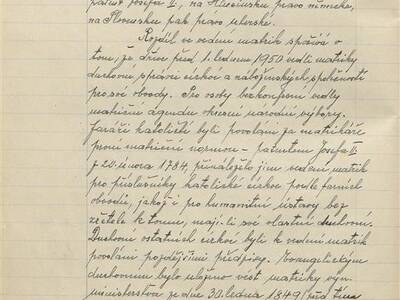 patent Josefa II., na Hlučínsku právo německé,
na Slovensku pak právo uherské.
Rozdíl ve vedení matrik spočívá v
tom, že dříve před 1. lednem 1950 vedli matriky
duchovní, správci církví a náboženských společností
pro své obvody. Pro osoby bez konfese vedly
matriční agendu okresní národní výbory.
Faráři katoličtí byli povoláni za matrikáře
první matriční normou – patentem Josefa II.
z 20. února 1784, přínáleželo jim vedení matrik
pro příslušníky katolické církve podle farních
obvodů, jakož i pro humanitní ústavy bez
zřetele k tomu, mají-li své vlastní duchovní.
Duchovní ostatních církví byli k vedení matrik
povoláni pozdějšími předpisy. Evangelickým
duchovním bylo uloženo vést matriky vyn.
ministerstva ze dne 30. ledna 1849